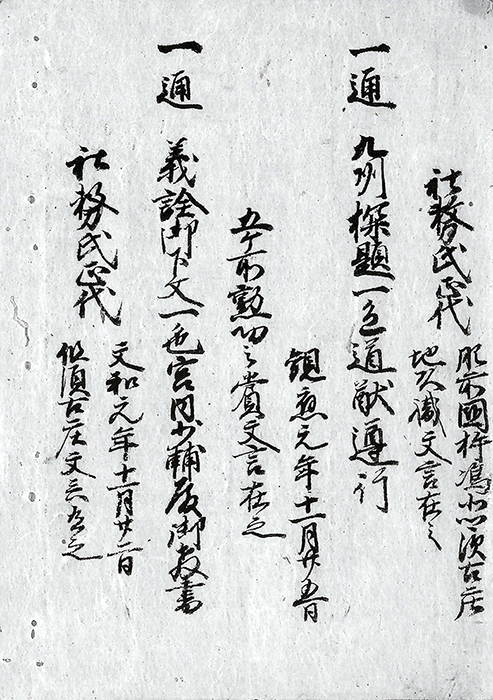 社務氏代
肥前國杵嶋須古庄
地頭職文言在之
一通 九州探題一色道猷遵行
觀應元年十一月廿五日
五ケ所勲功之賞文言在之
一通 義詮御下文一色宮内少輔殿御教書
文和元年十一月廿二日
社務氏代
但須古庄文言在之